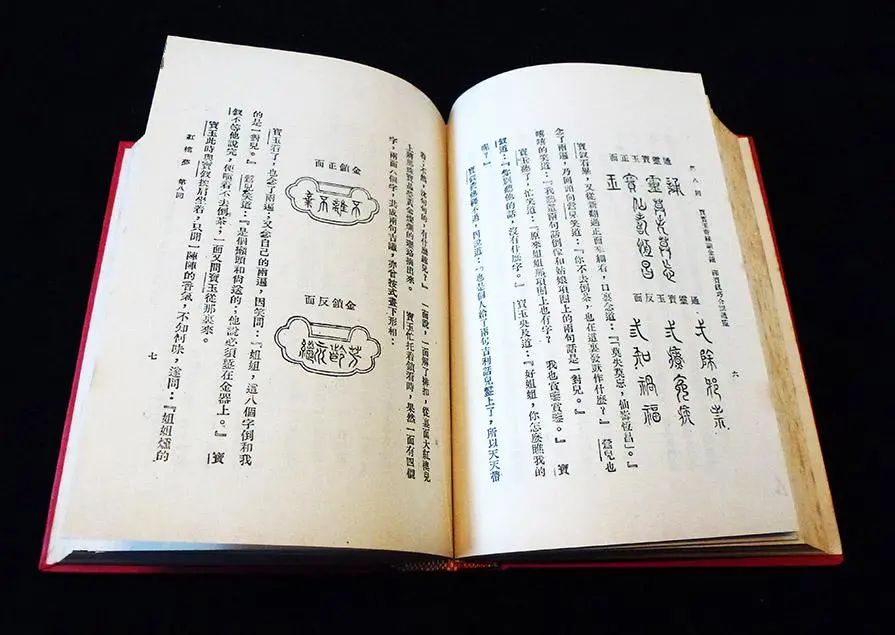 第八回 賈寶玉奇緣識金鎖 薛寶釵巧合認通靈
六
通靈寶玉正面
莫失莫忘
仙壽恆昌
通靈寶玉
通靈寶玉反面
一除邪祟
二療冤疾
三知禍福
寶釵看畢,又從新翻過正面來細看,口裏念道:『莫失莫忘,仙壽恆昌。』
念了兩遍,乃回頭向鶯兒笑道:『你不去倒茶,也在這裏發獃作什麼?』鶯兒也
嘻嘻的笑道:『我聽這兩句話倒像和姑娘項圈上的兩句話是一對兒。』
寶玉聽了,忙笑道:『原來姐姐那項圈上也有字?我也賞鑒賞鑒。』寶
釵道:『你別聽他的話,沒有什麼字。』寶玉央及道:『好姐姐,你怎麼瞧我的
呢?』寶釵被他纏不過,因說道:『也是個人給了兩句吉利話兒鏨上了,所以天天帶
着;不然,沉甸甸的,有什麼趣兒?』一面說,一面解了排扣,從裏面大紅襖兒
上將那珠寶晶瑩黃金燦爛的瓔珞摘出來。寶玉忙托着鎖看時,果然一面有四個
字,兩面八個字,共成兩句吉讖,亦曾按式畫下形相:
金鎖正面
不離不棄
金鎖反面
芳齡永繼
寶玉看了,也念了兩遍,又念自己的兩遍,因笑問:『姐姐,這八個字倒和我
的是一對兒。』鶯兒笑道:『是個癩頭和尚送的;他說必須鏨在金器上。』寶
釵不等他說完,便嗔着不去倒茶,一面又問寶玉從那裏來。
寶玉此時與寶釵挨肩坐着,只聞一陣陣的香氣,不知何味,遂問:『姐姐燻的
紅樓夢 第八回
七